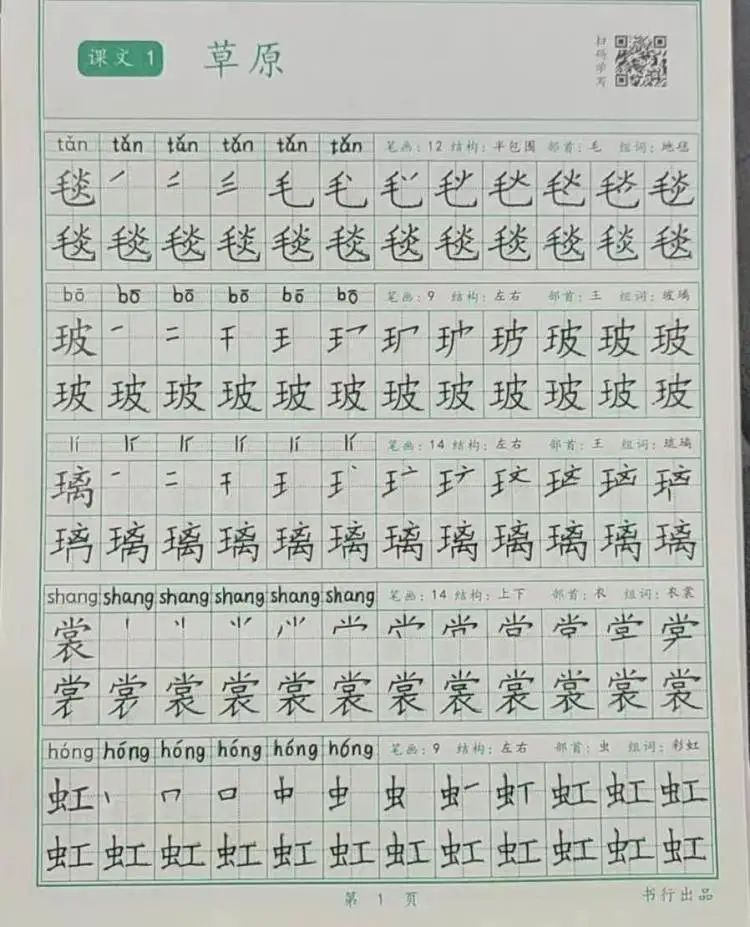 课文 1 草原
扫码学写
tǎn tǎn tǎn tǎn tǎn tǎn 笔画：12 结构：半包围 部首：毛 组词：地毯
毯 丿 二 彡 毛
毯 毯 毯 毯 毯 毯 毯 毯 毯 毯
bō bō bō bō bō bō 笔画：9 结构：左右 部首：王 组词：玻璃
玻 一 二 干 王 玻 玻 玻
玻 玻 玻 玻 玻 玻 玻 玻 玻 玻 玻 玻
lí lí lí lí lí lí 笔画：14 结构：左右 部首：王 组词：琉璃
璃 一 二 干 王
璃 璃 璃 璃 璃 璃 璃 璃 璃 璃
shang shang shang shang shang shang 笔画：14 结构：上下 部首：衣 组词：衣裳
裳
裳 裳 裳 裳 裳 裳 裳 裳 裳 裳
hóng hóng hóng hóng hóng hóng 笔画：9 结构：左右 部首：虫 组词：彩虹
虹 丨 冂 口 中 虫 虹 虹 虹
虹 虹 虹 虹 虹 虹 虹 虹 虹 虹 虹 虹
第 1 页
书行出品